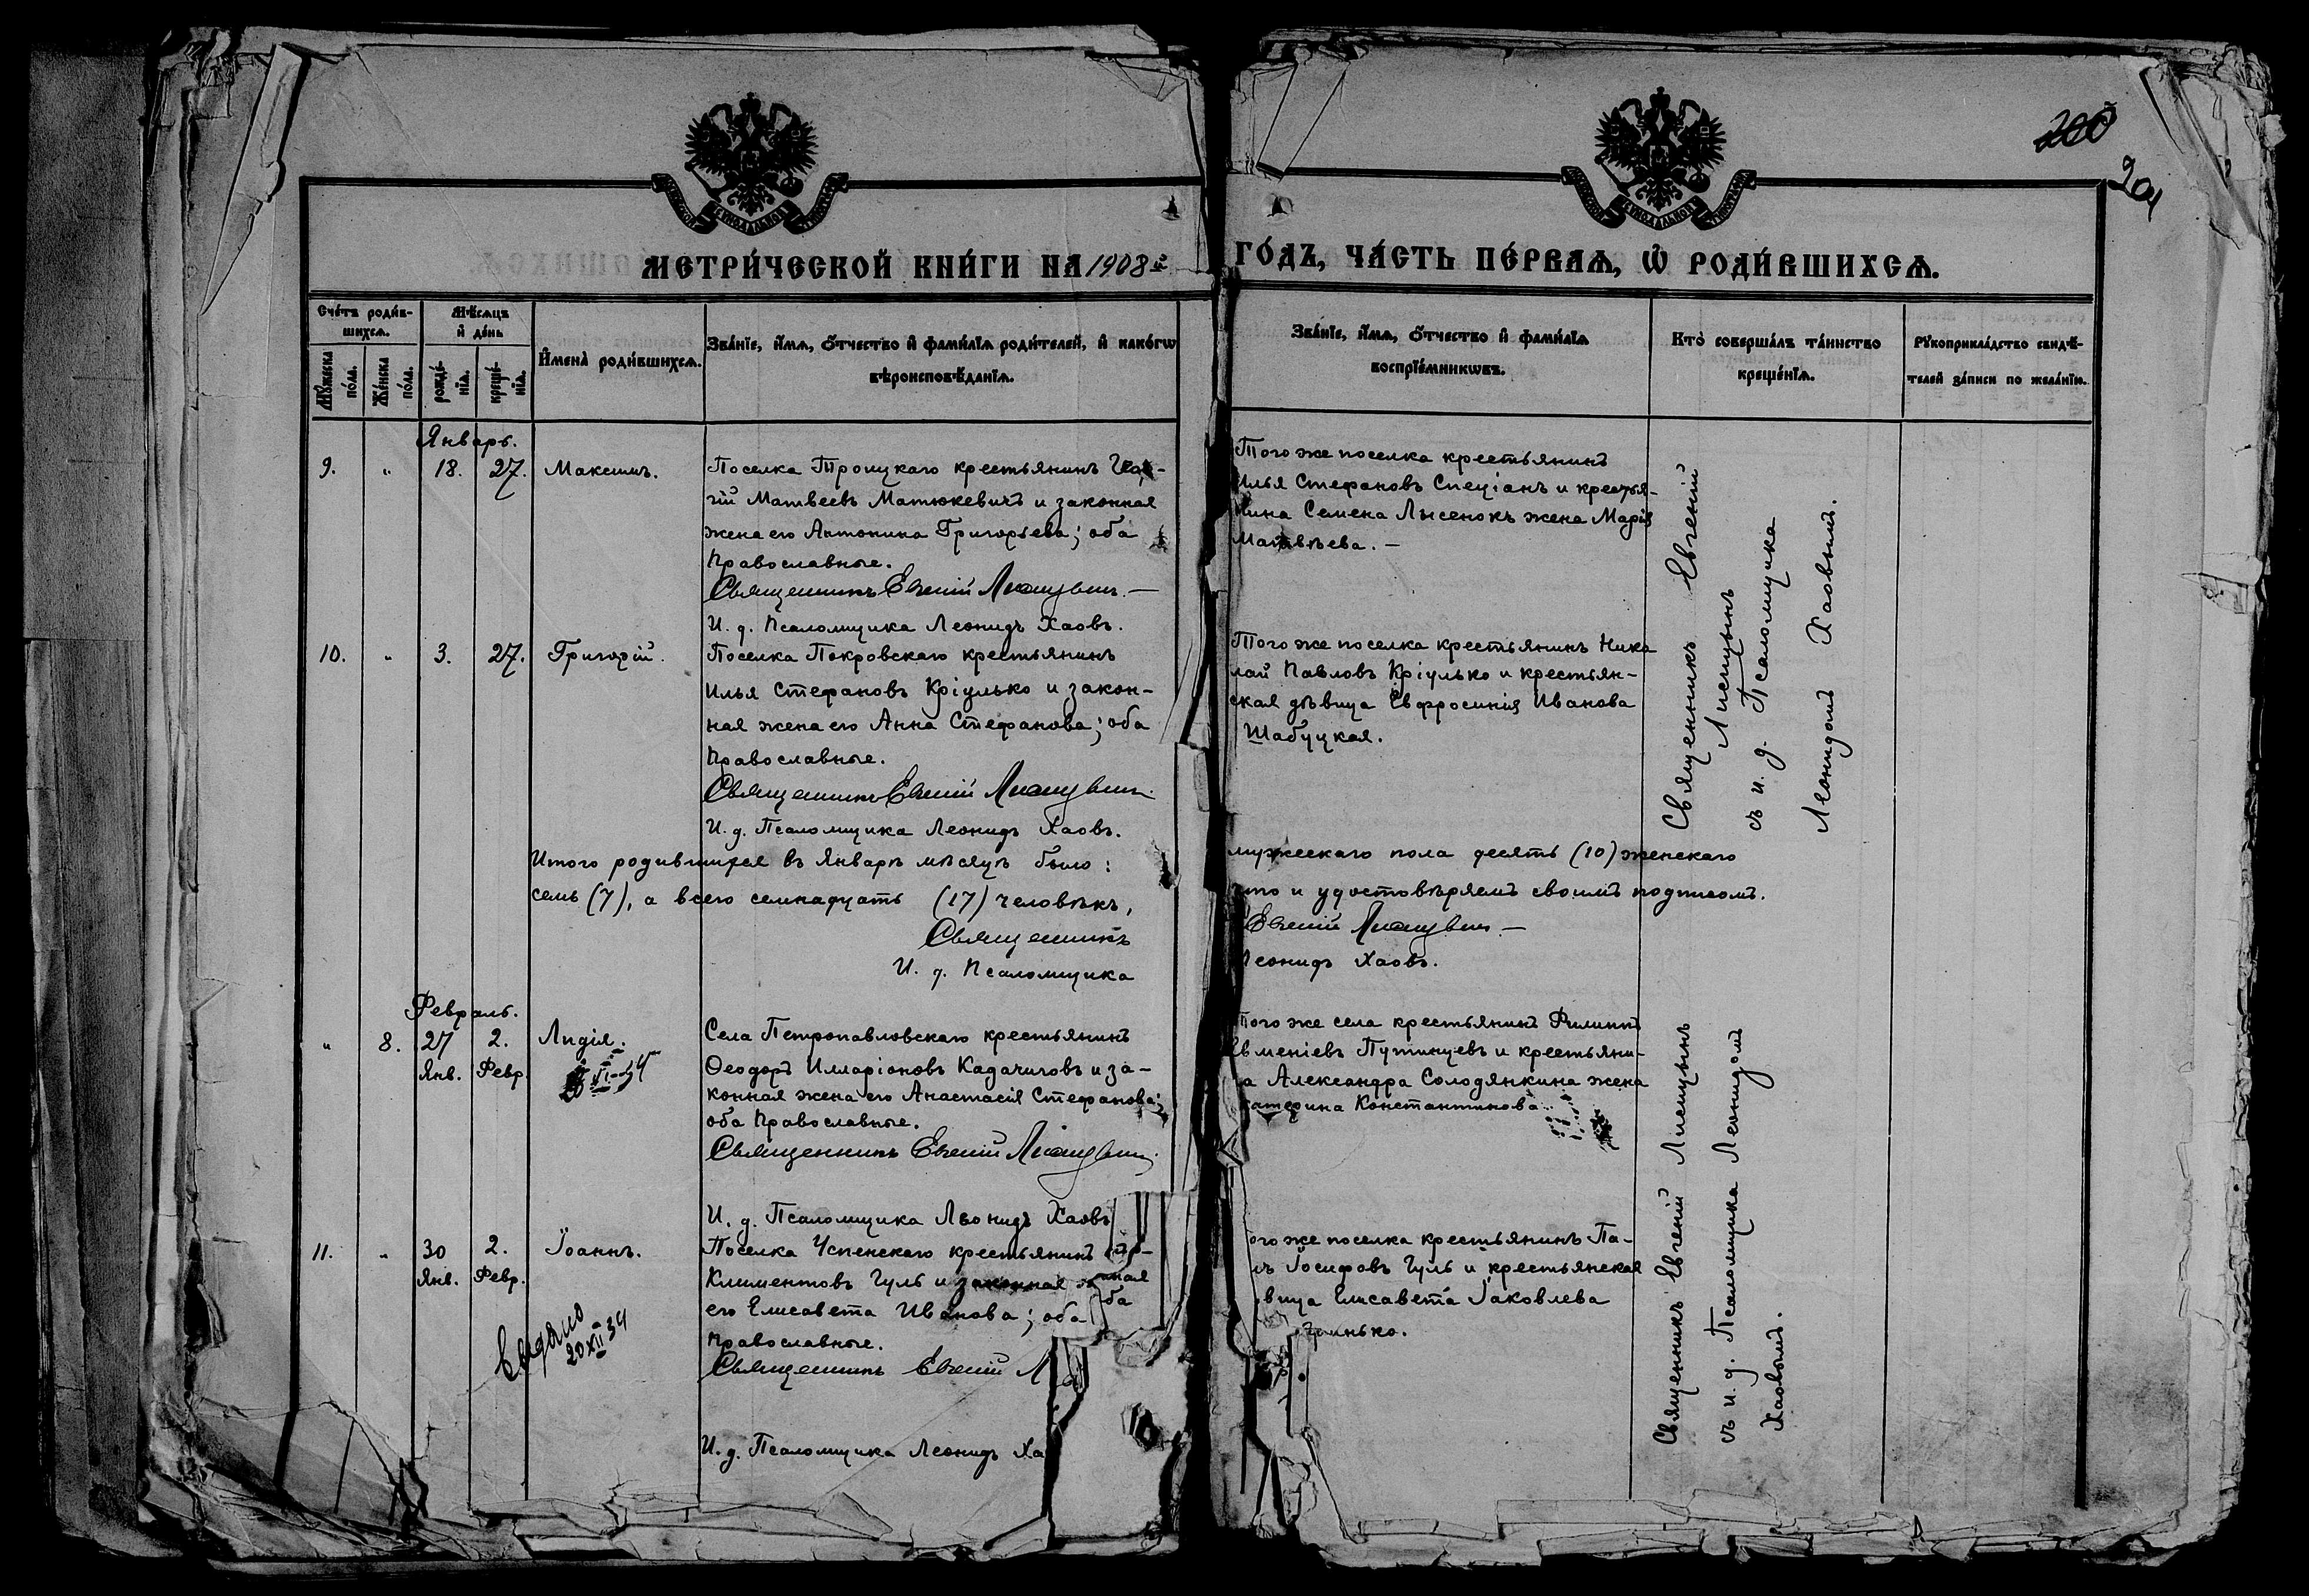 200
201
МЕТРИ́ЧЕСКОЙ КНИ́ГИ НА 1908й ГО́ДЪ, ЧА́СТЬ ПЕ́РВАѦ, Ѡ҆ РОДИ́ВШИХСѦ.
Сче́тъ роди́в-
шихсѧ.
Мѣ́сѧцъ
и҆ де́нь
Мꙋ́жеска
по́ла.
Же́нска
по́ла.
рожде́-
нїѧ.
креще́-
нїѧ.
И҆мена̀ роди́вшихсѧ.
Зва́нїе, и҆́мѧ, ѻ҆́тчество и҆ фами́лїѧ роди́телей, и҆ како́гѡ
вѣроисповѣ́данїѧ.
Зва́нїе, и҆́мѧ, ѻ҆́тчество и҆ фами́лїѧ
воспрїе́мникѡвъ.
Кто̀ соверша́лъ та́инство
креще́нїѧ.
Рꙋкоприкла́дство свидѣ́-
телей за́писи по жела́нїю.
Январь.
9. " 18. 27. Максимъ.
Поселка Троицкаго крестьянинъ Геор-
гій Матвеевъ Матюкевичъ и законная
жена его Антонина Григорьева; оба
Православные.
Священникъ Евгеній Лисицынъ. —
И. д. Псаломщика Леонидъ Хаовъ.
Того же поселка крестьянинъ
Илья Стефановъ Специанъ и крестья-
нина Семена Лысенокъ жена Марія
Матвѣева. —
10. " 3. 27. Григорій.
Поселка Покровскаго крестьянинъ
Илья Стефановъ Кріулько и закон-
ная жена его Анна Стефанова; оба
Православные.
Священникъ Евгеній Лисицынъ.
И. д. Псаломщика Леонидъ Хаовъ.
Того же поселка крестьянинъ Нико
лай Павловъ Кріулько и крестьян-
ская дѣвица Евфросинія Иванова
Шабуцкая.
Священникъ Евгеній
Лисицынъ
съ и. д. Псаломщика
Леонидомъ Хаовымъ.
Итого родившихся въ Январѣ мѣсяцѣ было: мужескаго пола десять (10) женскаго
семь (7), а всего семнадцать (17) человѣкъ, что и удостовѣряемъ своимъ подписомъ.
Священникъ Евгеній Лисицынъ —
И. д. Псаломщика Леонидъ Хаовъ.
Февраль.
" 8. 27 2. Лидія.
Янв. Февр.
Села Петропавловскаго крестьянинъ
Ѳеодоръ Илларіоновъ Кадачиговъ и за-
конная жена его Анастасія Стефанова;
оба Православные.
Священникъ Евгеній Лисицынъ.
И. д. Псаломщика Леонидъ Хаовъ
Того же села крестьянинъ Филиппъ
Евменіевъ Путинцевъ и крестьяни-
на Александра Солодянкина жена
Катерина Константинова.
11. " 30 2. Іоаннъ.
Янв. Февр.
Выдано
20 XII 34
Поселка Успенскаго крестьянинъ
Климентовъ Гуль и законная
его Елисавета Иванова; оба
Православные.
Священникъ Евгеній Л
И. д. Псаломщика Леонидъ Ха
ого же поселка крестьянинъ Па-
лъ Іосифовъ Гуль и крестьянская
вица Елисавета Іаковлева
Священникъ Евгеній Лисицынъ
съ и. д. Псаломщика Леонидомъ
Хаовымъ.